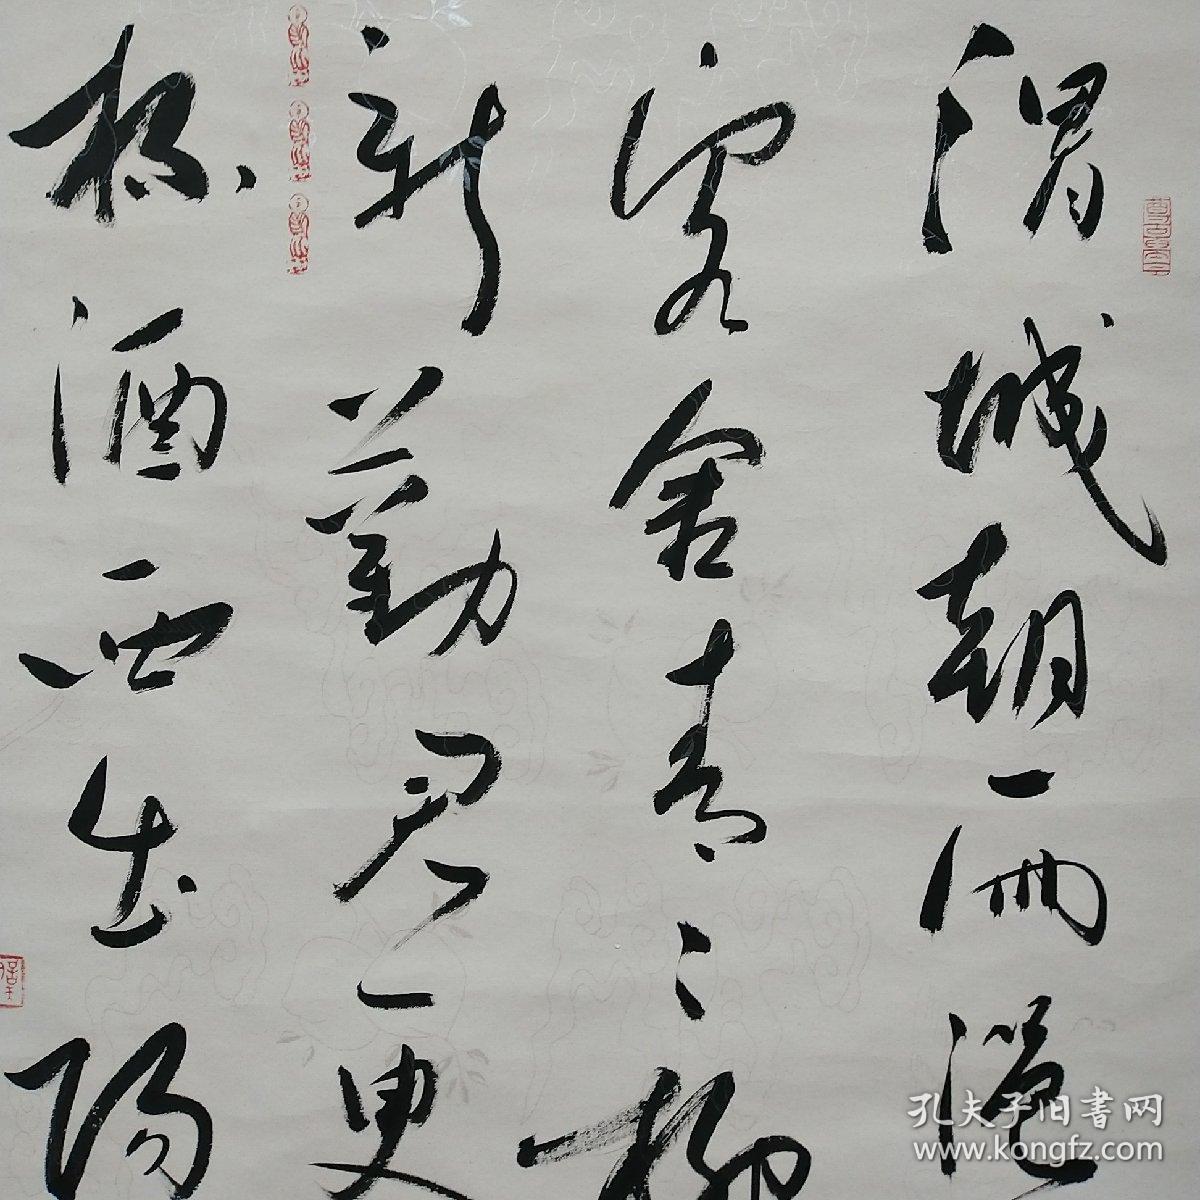 渭城朝雨浥
客舍青々柳
新劝君一更
杯酒西出阳
孔夫子旧书网
www.kongfz.com